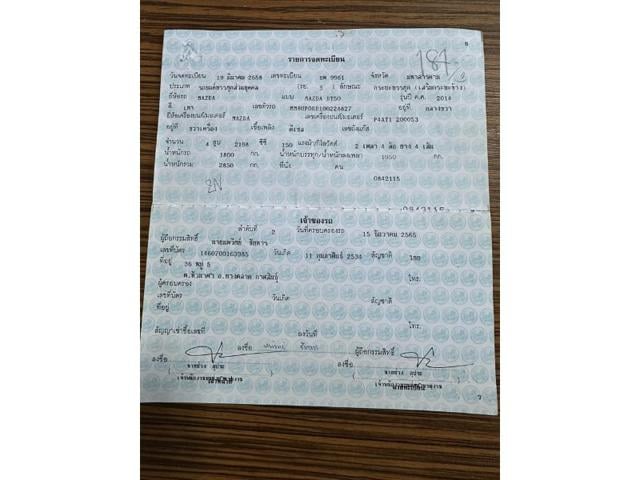 8
รายการจดทะเบียน
184
วันจดทะเบียน 19 มีนาคม 2558 เลขทะเบียน 9961 จังหวัด มหาสารคาม
ประเภท รถยนต์บรรทุกส่วนบุคคล (รย. 3 ) ลักษณะ กระบะบรรทุก (เสริมกระบะข้าง)
ยี่ห้อรถ MAZDA แบบ MAZDA BT50 รุ่นปี ค.ศ. 2014
สี เทา เลขตัวรถ อยู่ที่ กลางขวา
ยี่ห้อเครื่องยนต์/มอเตอร์ MAZDA เลขเครื่องยนต์/มอเตอร์ P4AT1 200053
อยู่ที่ ขวาเครื่อง เชื้อเพลิง ดีเซล เลขถังแก๊ส
จำนวน 4 สูบ 2198 ซีซี 150 แรงม้า/กิโลวัตต์ 2 เพลา 4 ล้อ ยาง 4 เส้น
น้ำหนักรถ 1800 กก. น้ำหนักบรรทุก/น้ำหนักลงเพลา 1050 กก.
น้ำหนักรวม 2850 กก. ที่นั่ง คน
0842115
เจ้าของรถ
ลำดับที่ 2 วันที่ครอบครองรถ 15 ธันวาคม 2565
ผู้ถือกรรมสิทธิ์
เลขที่บัตร 1460700163985 วันเกิด 11 กุมภาพันธ์ 2534 สัญชาติ ไทย
ที่อยู่ 36 หมู่ 5
อ.ยางตลาด กาฬสินธุ์ โทร.
ผู้ครอบครอง
เลขที่บัตร วันเกิด สัญชาติ
ที่อยู่
โทร.
สัญญาเช่าซื้อเลขที่ ลงวันที่
ลงชื่อ ผู้ถือกรรมสิทธิ์
ลงชื่อ ลงชื่อ
นายทะเบียน